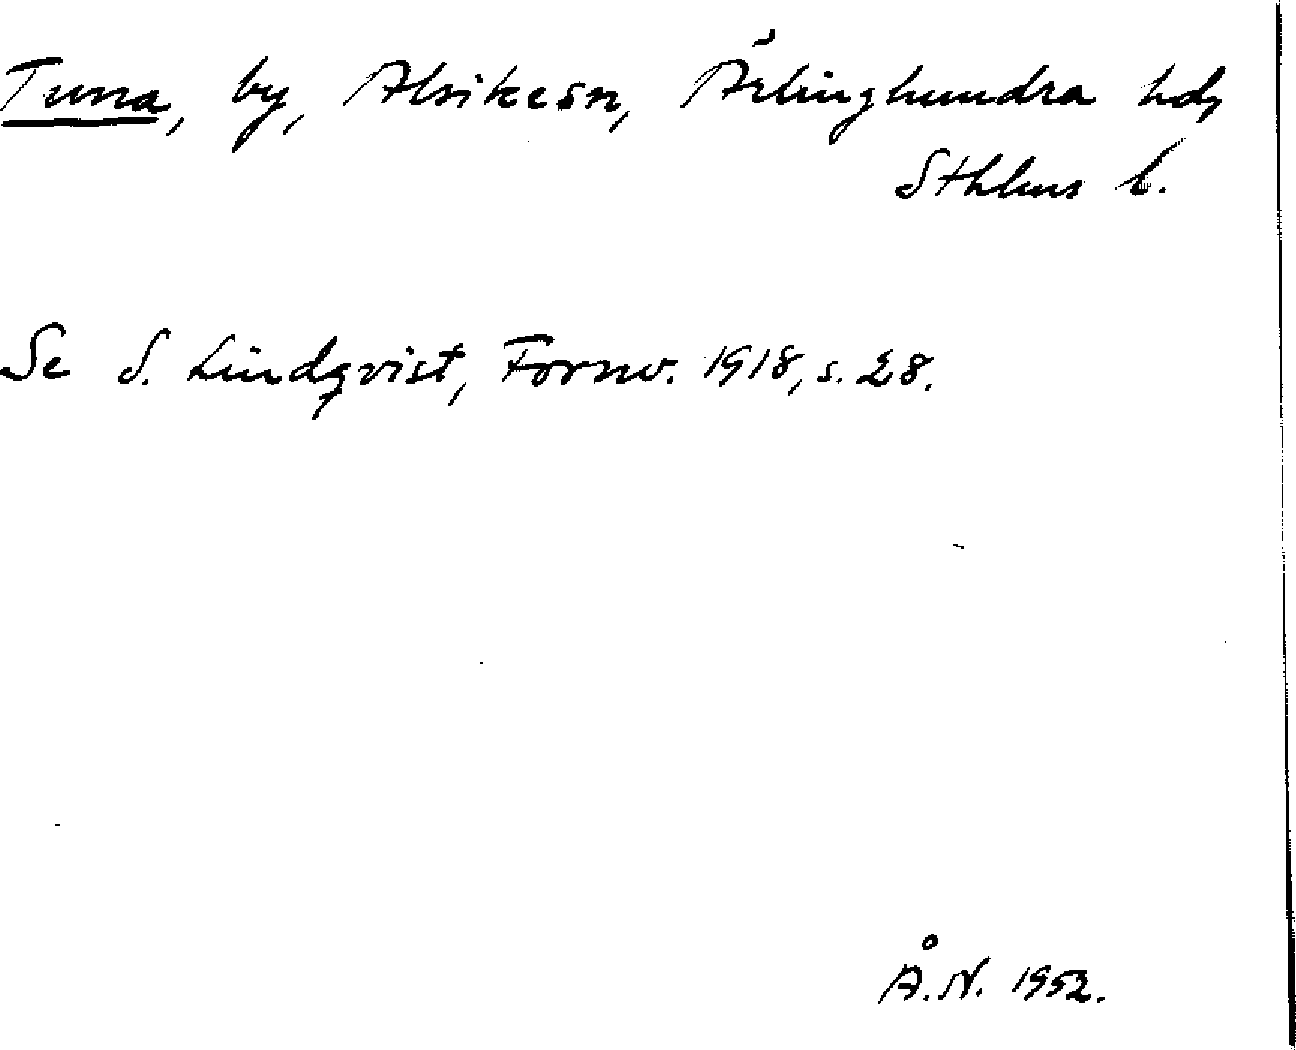 Tuna, by, Alsike sn, Ärlinghundra hd,
Sthlms l.
Se S. Lindqvist, Fornv. 1918, s. 28.
Å. N. 1952.